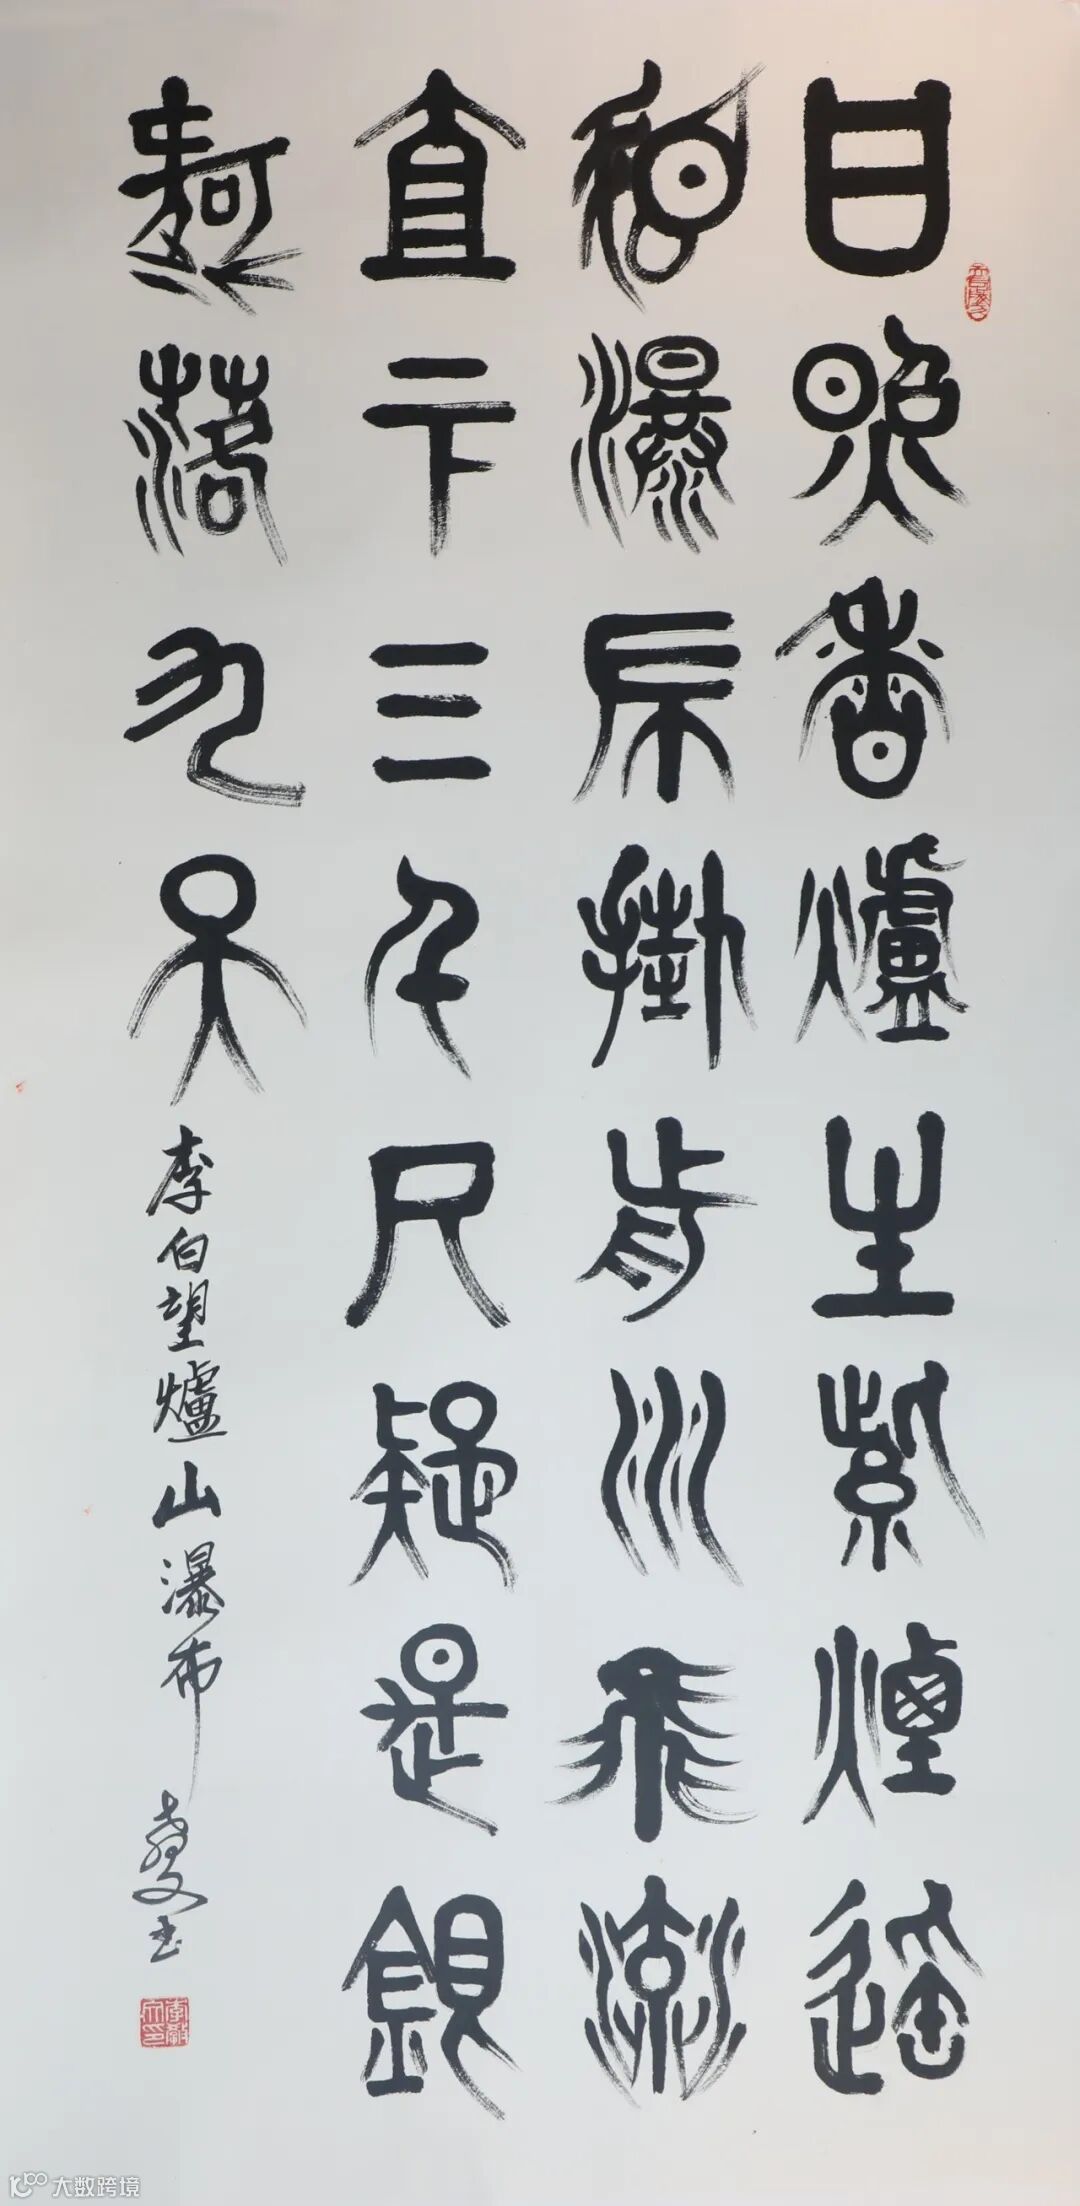 日照香爐生紫煙遙
看瀑布掛前川飛流
直下三千尺疑是銀
河落九天
李白望爐山瀑布 教文书
李教文印
大数跨境